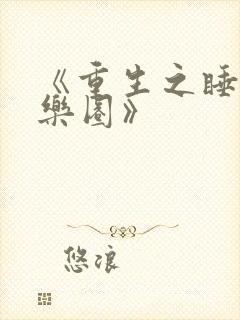 《重生之睡
樂園》
悠浪